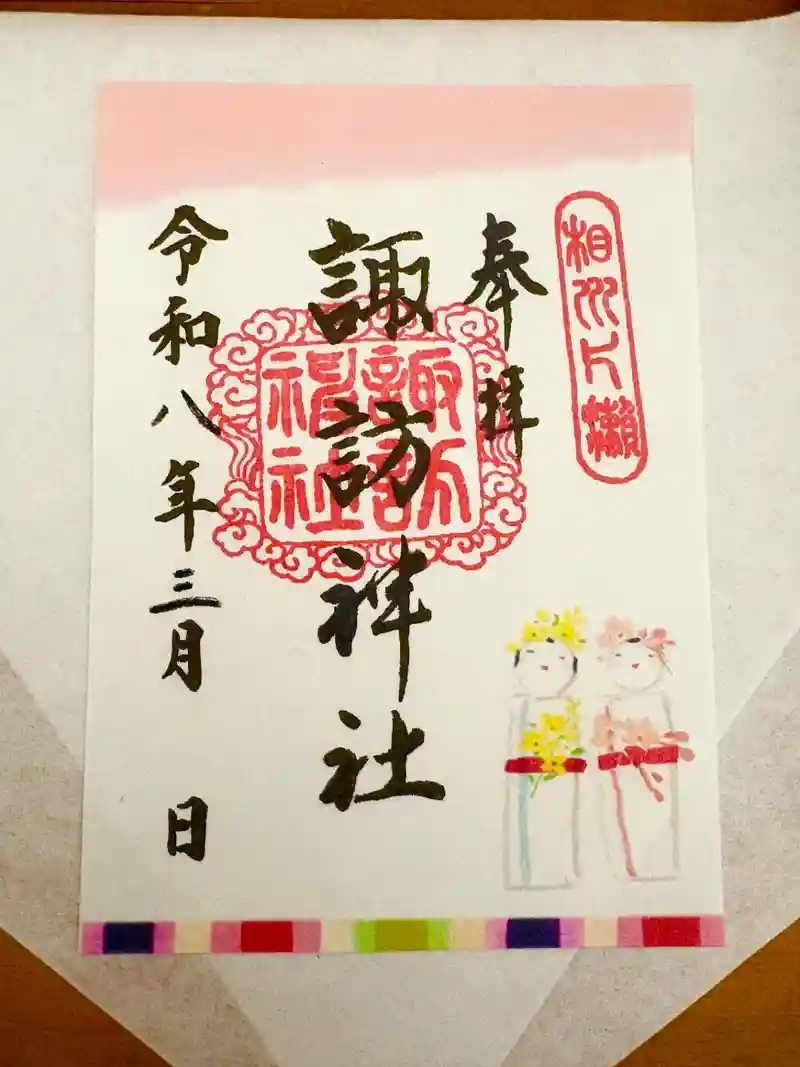 相州片瀬
奉拝
諏訪神社
諏訪神社
令和八年三月 日